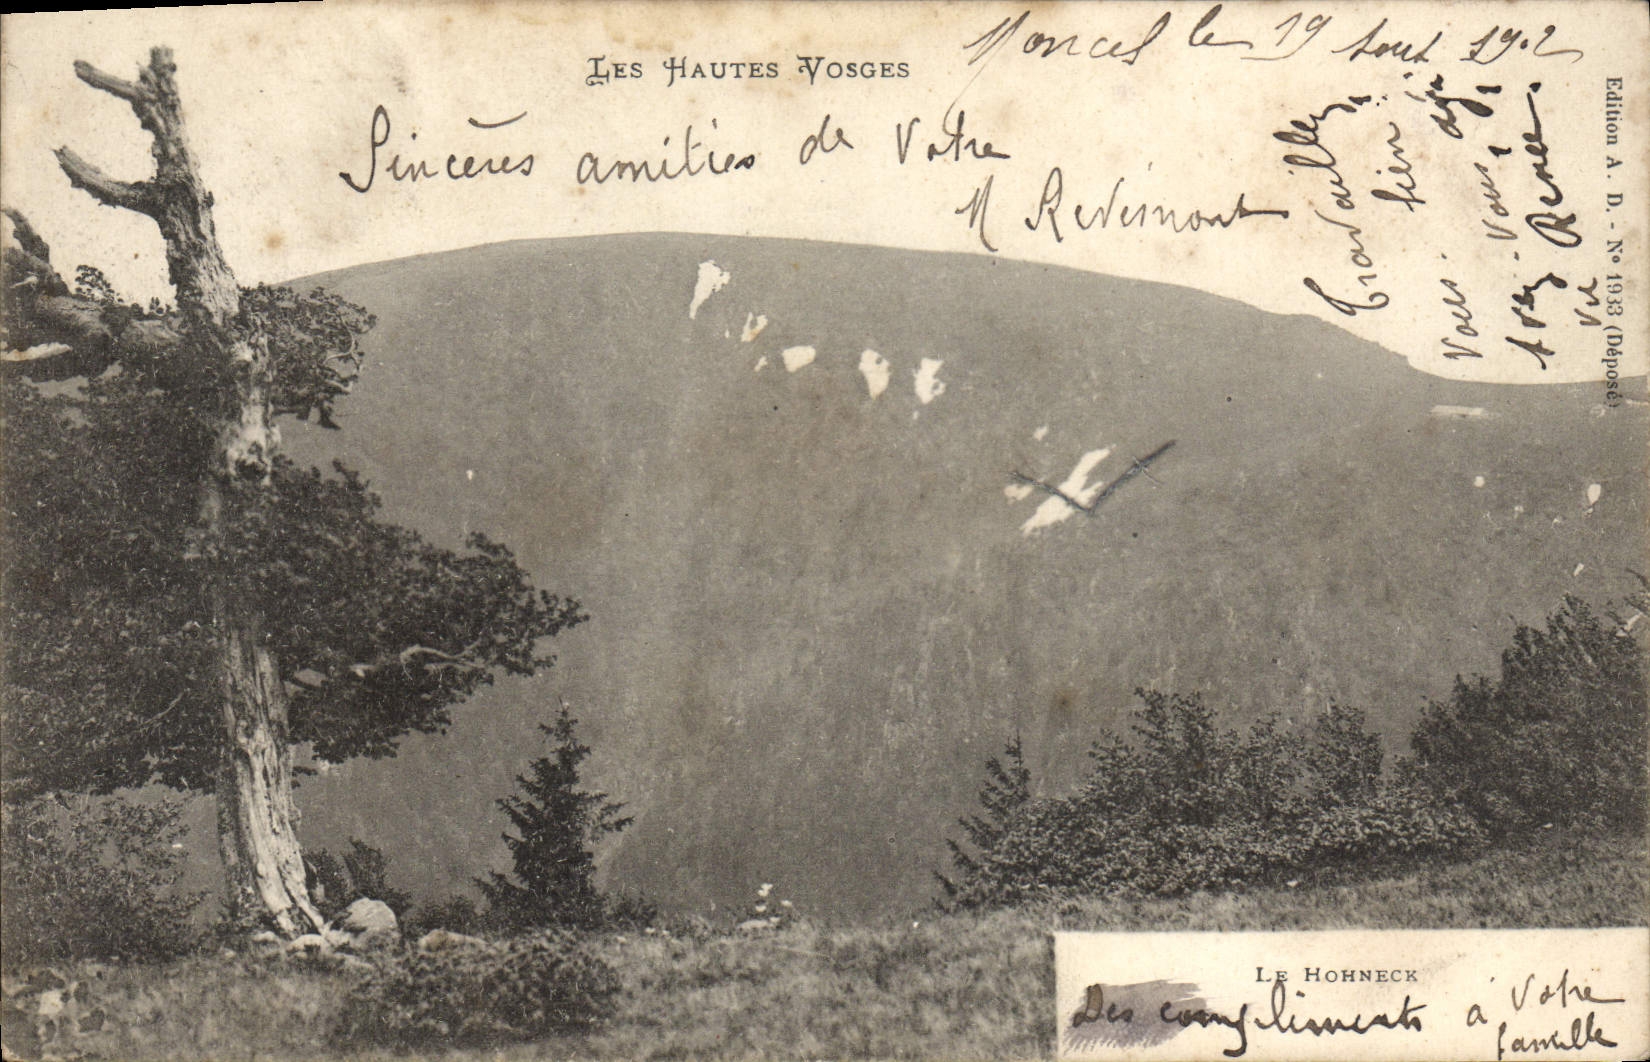 LES HAUTES VOSGES
Moncel le 19 Aout 1902
Sincères amitiés de Votre
M Revémont
Travaillez
bien déjà
Vous Vous,
Avez Remee
Vu
Edition A. D. - Nº 1933 (Déposé)
LE HOHNECK
Des compliments à Votre
famille